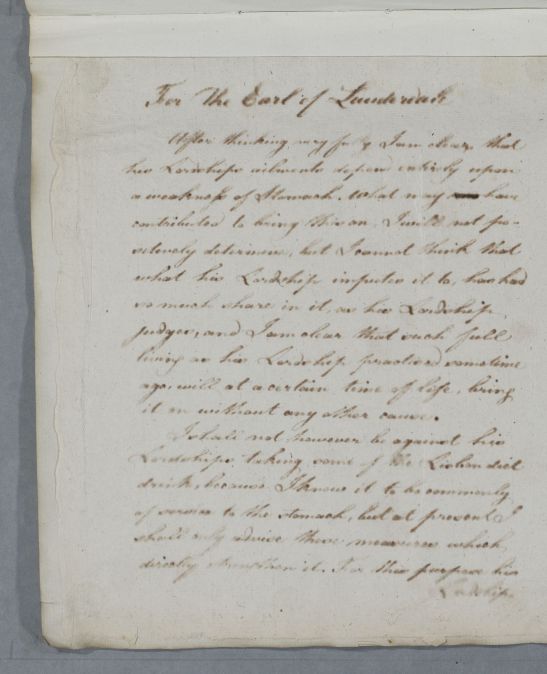 For The Earl of Lauderdale
After thinking very fully I am clear, that
his Lordships ailments depend entirely upon
a weakness of Stomach. What may have
contributed to bring this on, I will not po-
sitively determine, but I cannot think that
what his Lordship imputes it to, has had
so much share in it, as his Lordship
judges, and I am clear that such full
living as his Lordship practised sometime
ago, will at a certain time of life, bring
it on without any other cause.
I shall not however be against his
Lordships taking some of the Lisbon diet
drink, because I know it to be commonly
of service to the stomach, but at present I
shall only advise those measures which
directly strengthen it. For this purpose his
Lordship